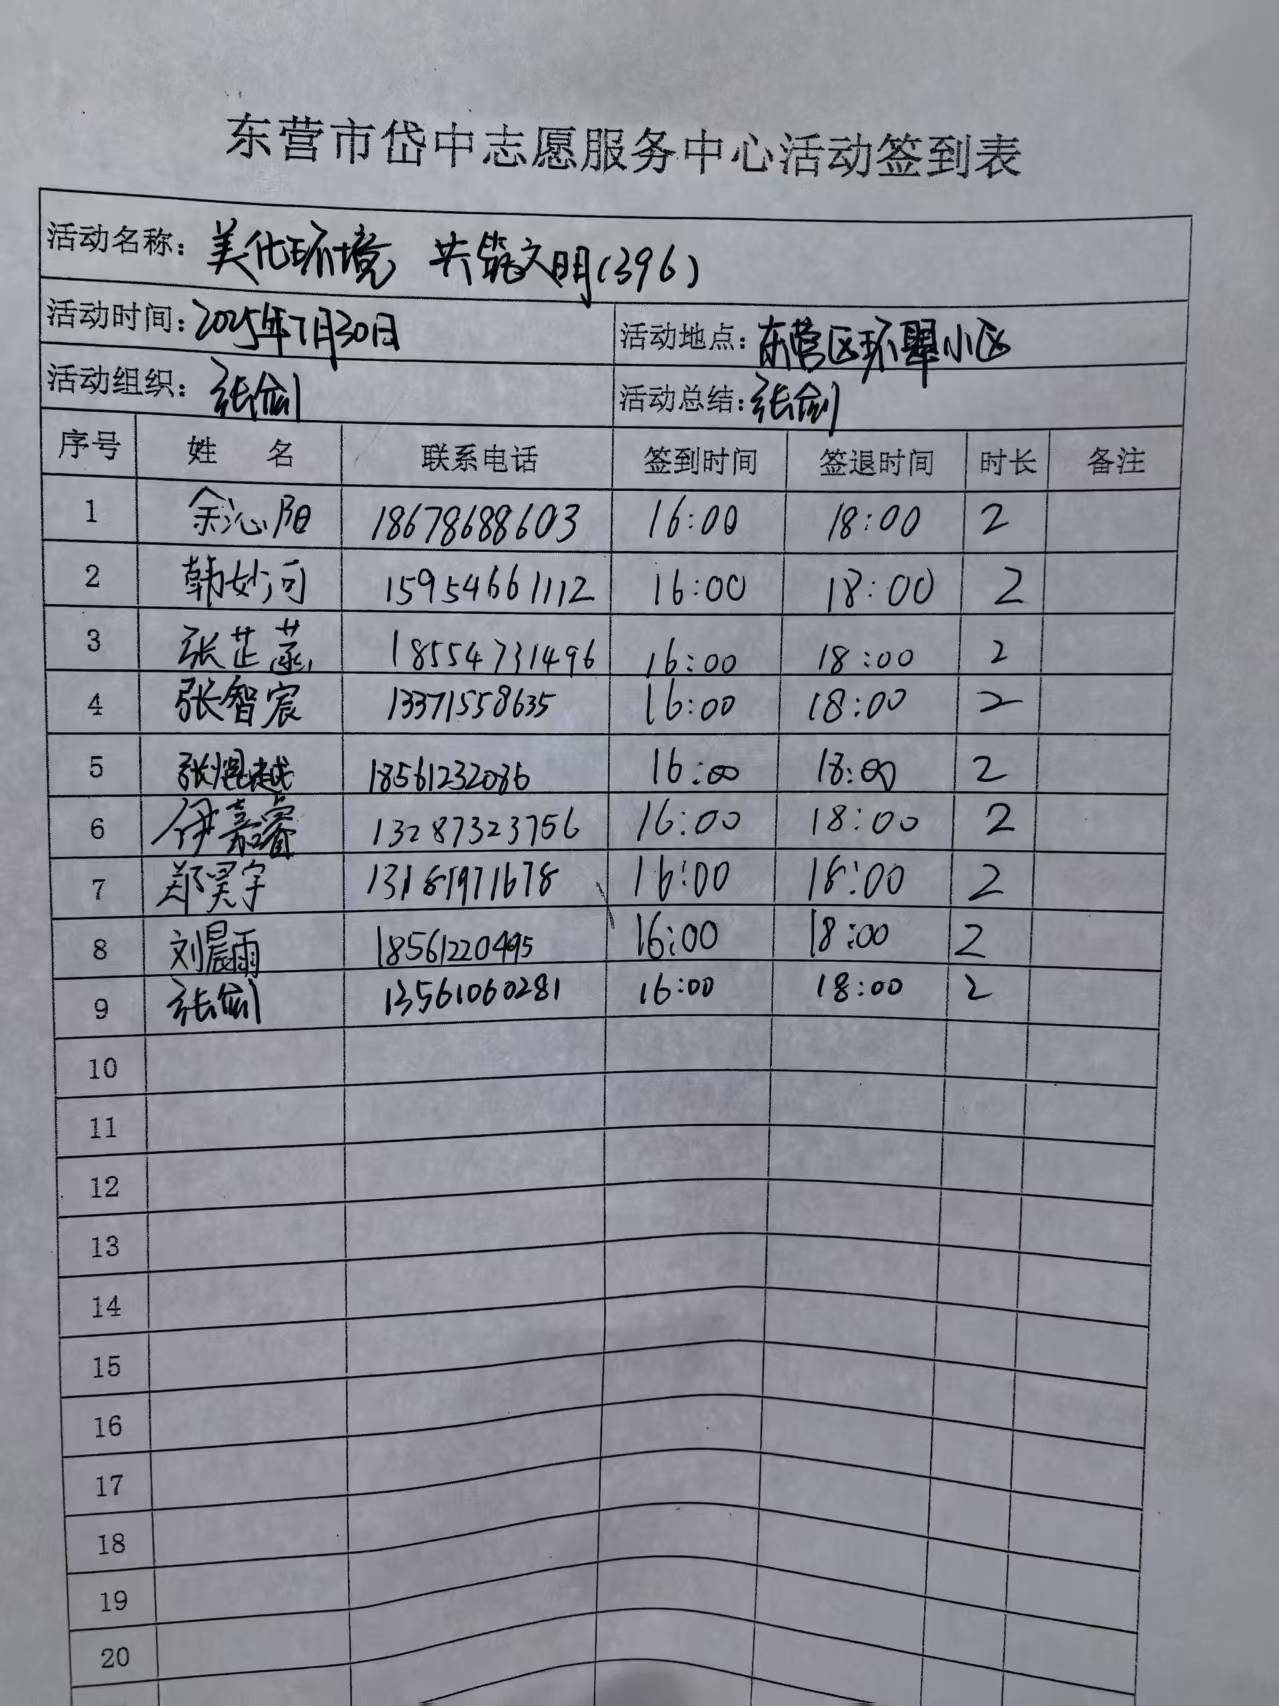 东营市岱中志愿服务中心活动签到表
活动名称：美化环境 共筑文明(396)
活动时间：2025年7月30日 活动地点：东营区环翠小区
活动组织：张剑 活动总结：张剑
序号 姓 名 联系电话 签到时间 签退时间 时长 备注
1 余沁阳 18678688603 16:00 18:00 2
2 韩妙可 15954661112 16:00 18:00 2
3 张芷菡 18554731496 16:00 18:00 2
4 张智宸 13371558635 16:00 18:00 2
5 张焜越 18561232086 16:00 18:00 2
6 伊嘉睿 13287323756 16:00 18:00 2
7 郑昊宇 13181971678 16:00 18:00 2
8 刘晨雨 18561220495 16:00 18:00 2
9 张剑 13561060281 16:00 18:00 2
10
11
12
13
14
15
16
17
18
19
20